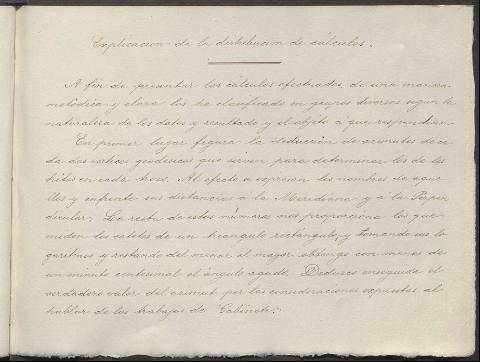 Explicacion de la distribucion de cálculos.
A fin de presentar los cálculos efectuados, de una manera
metódica y clara los he clasificado en grupos diversos segun la
naturaleza de los datos y resultado y el objeto a que respondian.
En primer lugar figura la deduccion de azimutes de ca
da dos vertices geodesicos que sirven para determinar los de los
hitos en cada kros. Al efecto se expresan los nombres de aque
llos y enfrente sus distancias a la Meridiana y a la Perpen
dicular; La resta de estos números nos proporciona los que
miden los catetos de un triangulo rectángulo, y tomando sus lo
garitmos y restando del menor el mayor obtengo con menos de
un minuto centesimal el ángulo agudo. Deduzco enseguida el
verdadero valor del azimut por las consideraciones expuestas al
hablar de los trabajos de Gabinete.